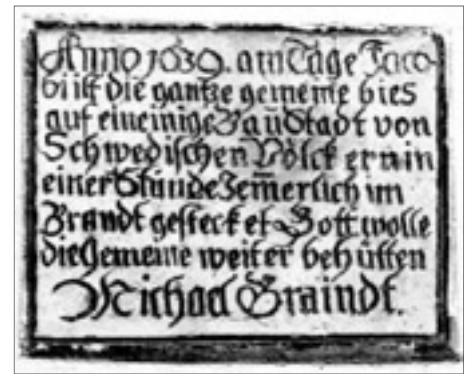 Anno 1639. am Tage Jaco-
bi ist die gantze gemeine bies
auf eine inige Baustadt von
Schwedischen Völckern in
einer Stunde Jem̄erlich im
Brandt gestecket Gott wolle
die Gemeine weiter behütten
Michael Braindt.